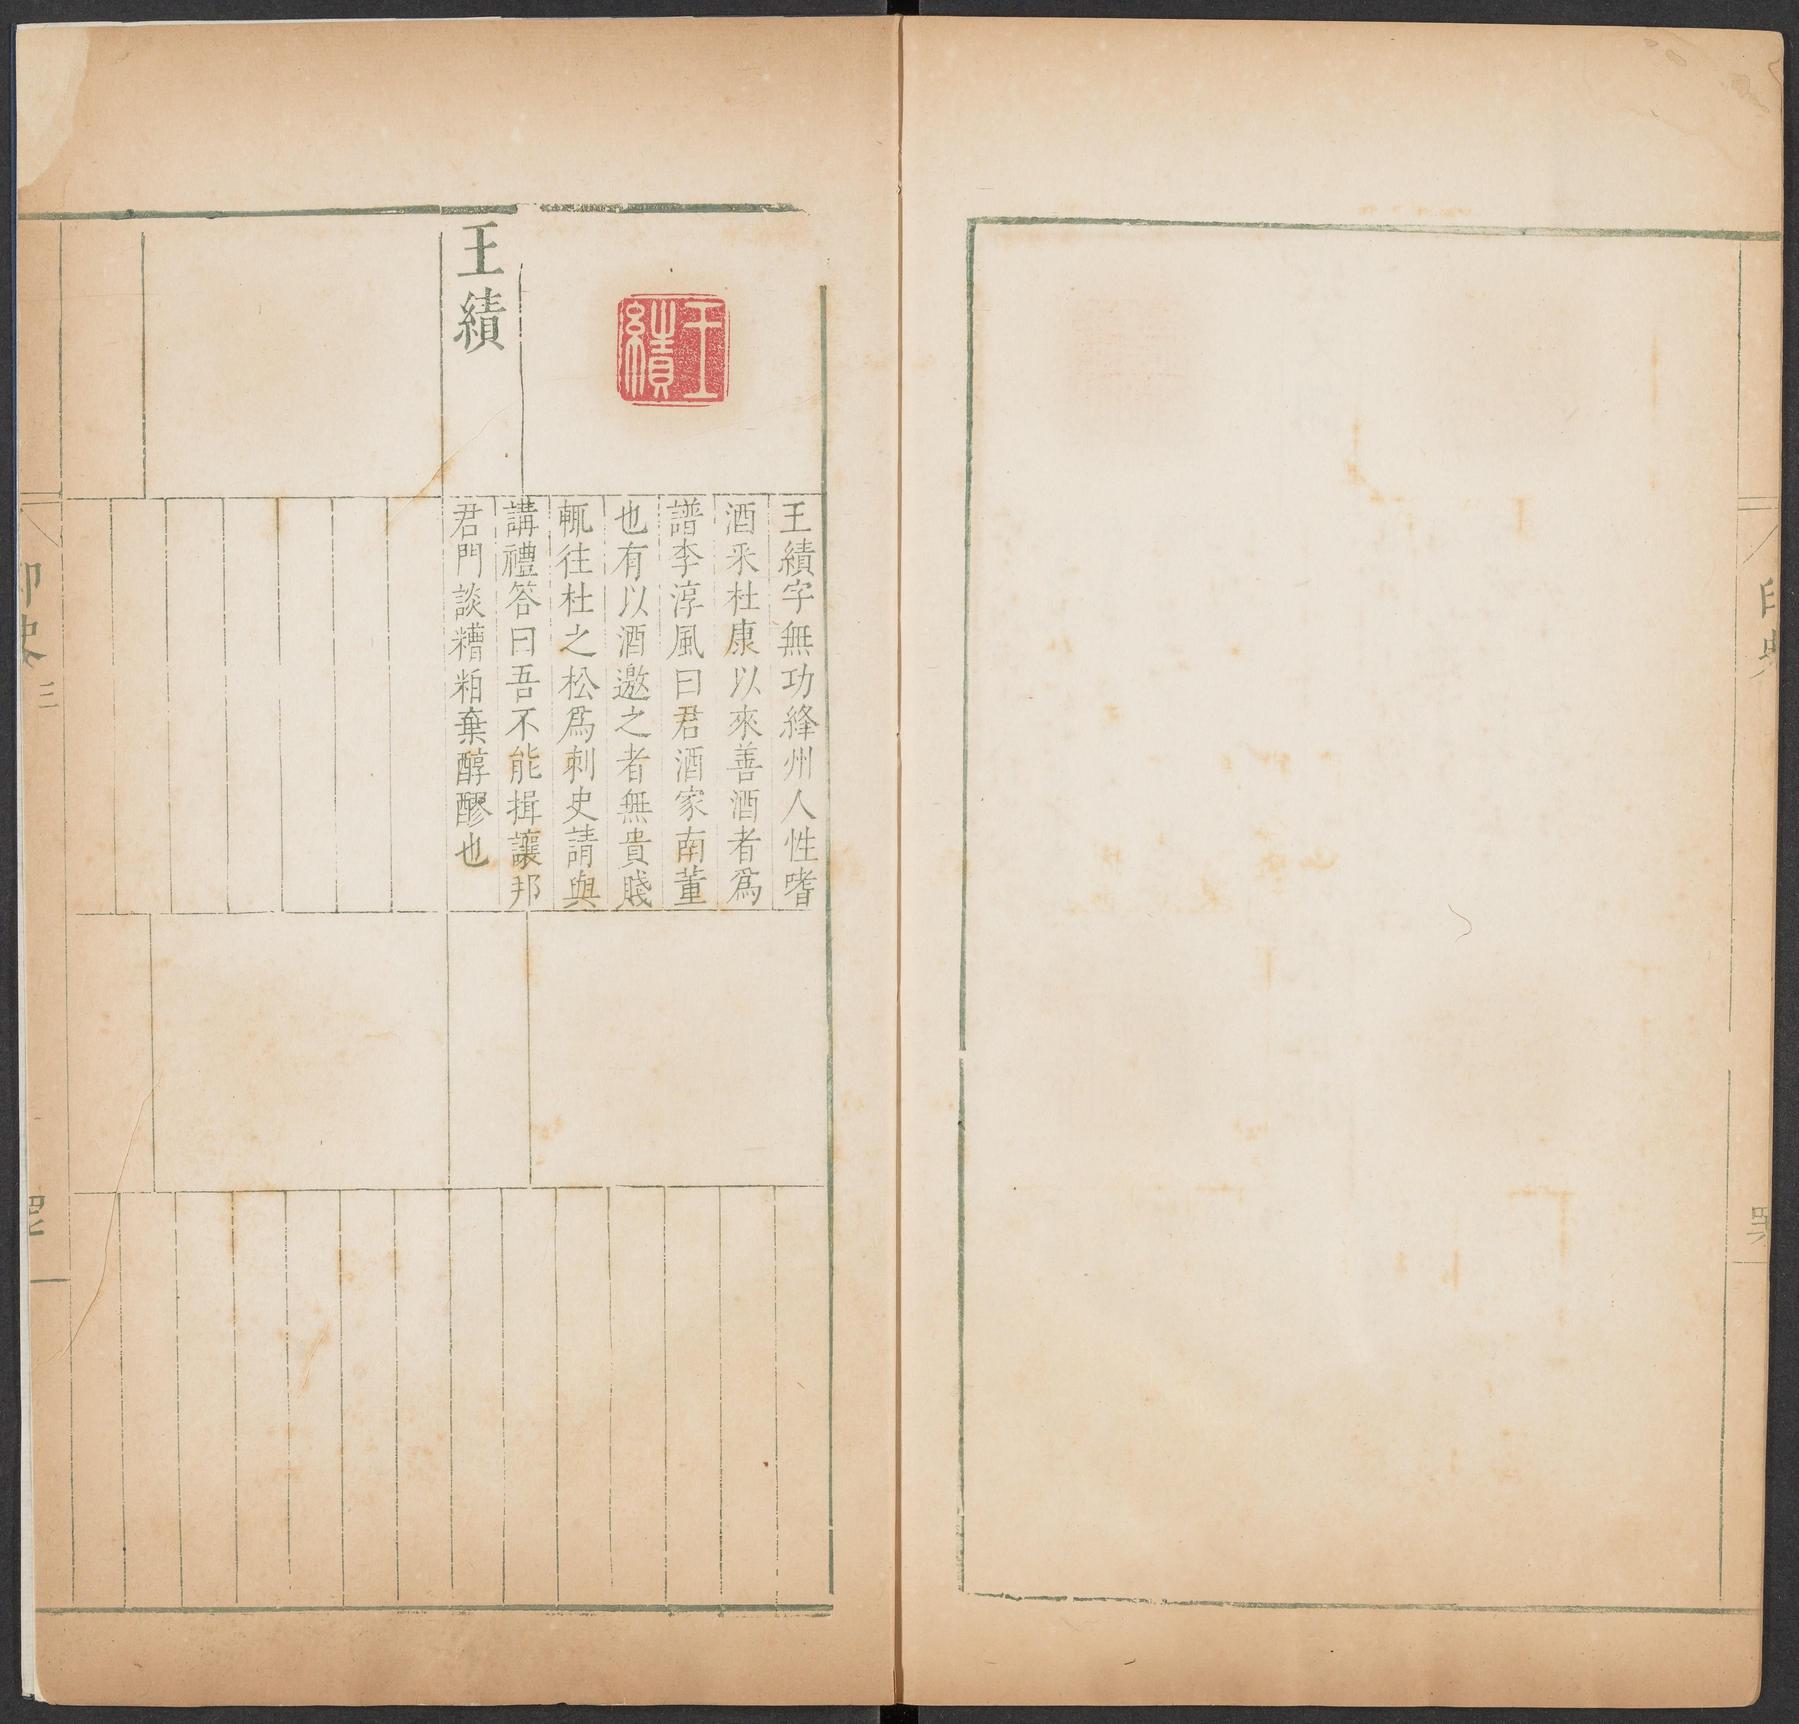 王績
王績
王績字無功絳州人性嗜
酒采杜康以來善酒者爲
譜李淳風曰君酒家南董
也有以酒邀之者無貴賤
輒往杜之松爲刺史請與
講禮答曰吾不能揖讓邦
君門談糟粕棄醇醪也
印史
三